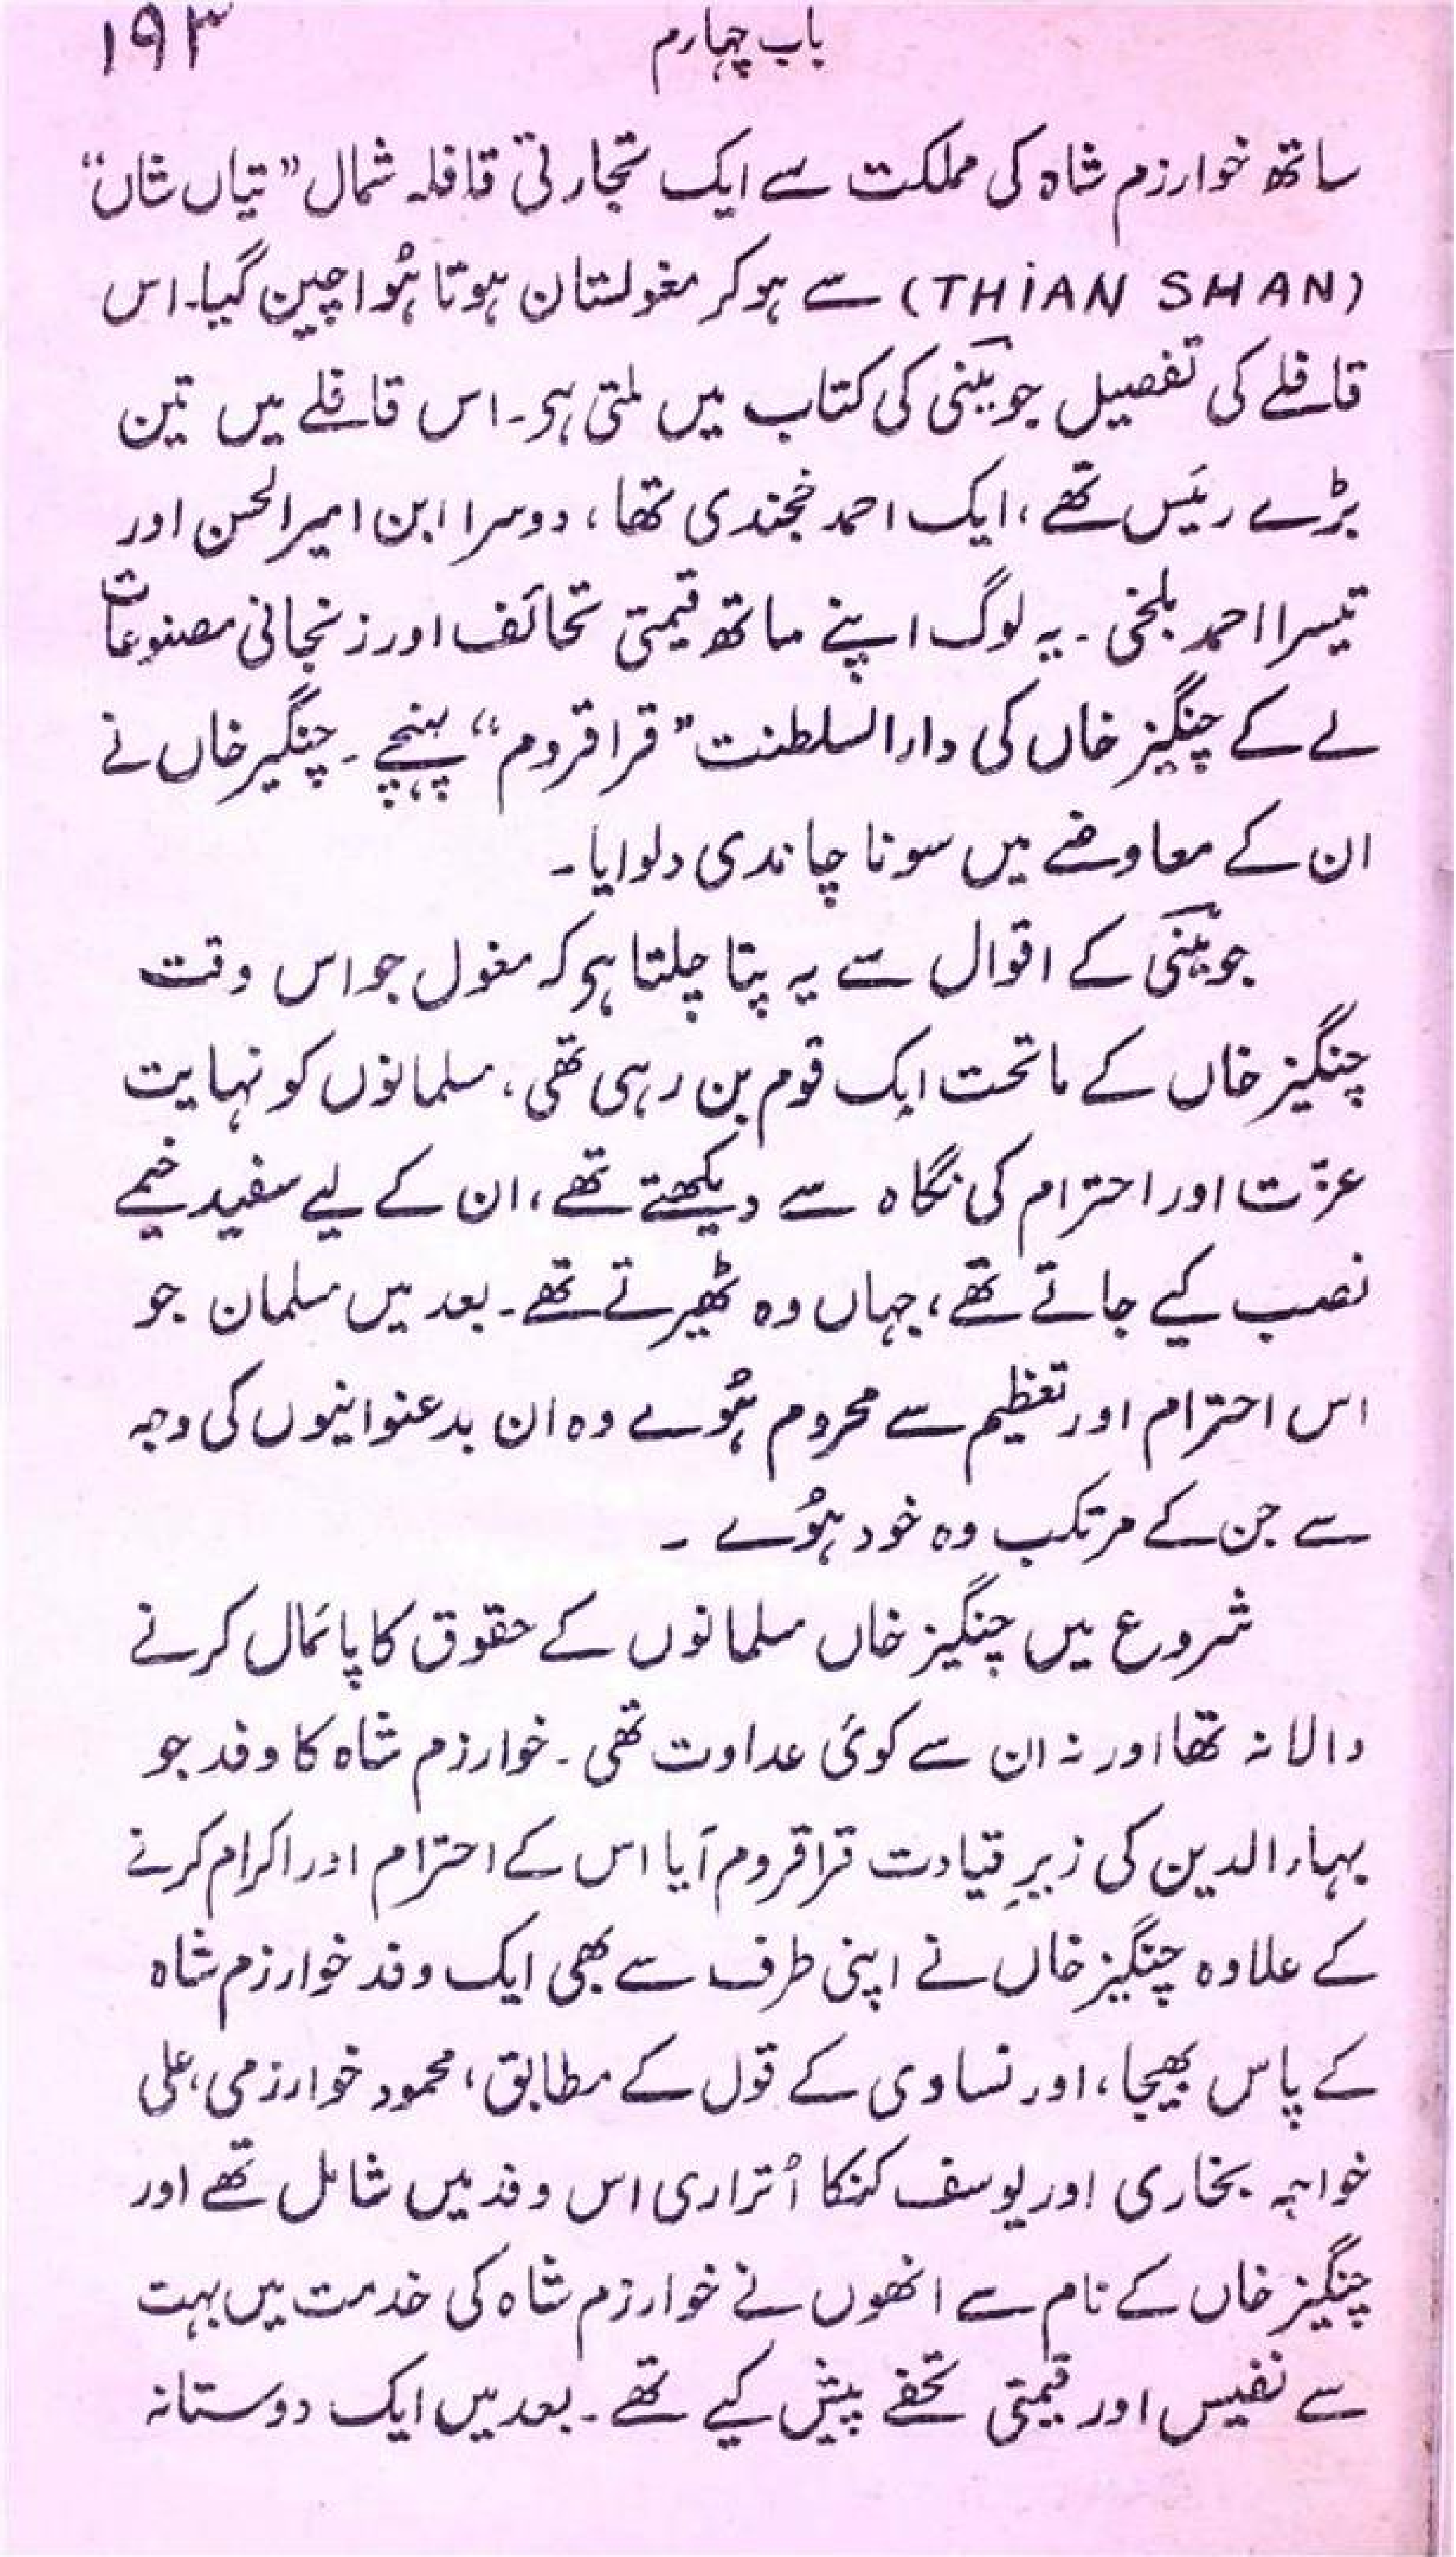 باب چہارم ۱۹۳
ساتھ خوارزم شاہ کی مملکت سے ایک تجارتی قافلہ شمال ”تیاں شاں“
(THiAN SHAN) سے ہوکر مغولستان ہوتا ہُوا چین گیا۔ اس
قافلے کی تفصیل جوینی کی کتاب میں ملتی ہی۔ اس قافلے میں تین
بڑے رئیس تھے، ایک احمد خجندی تھا، دوسرا ابن امیرالحسن اور
تیسرا احمد بلخی ۔ یہ لوگ اپنے ساتھ قیمتی تحائف اور زنجانی مصنوعات
لے کے چنگیز خاں کی دارالسلطنت ”قراقروم“ پہنچے ۔ چنگیز خاں نے
ان کے معاوضے میں سونا چاندی دلوایا۔
جوینی کے اقوال سے یہ پتا چلتا ہی کہ مغول جو اس وقت
چنگیز خاں کے ماتحت ایک قوم بن رہی تھی، مسلمانوں کو نہایت
عزّت اور احترام کی نگاہ سے دیکھتے تھے، ان کے لیے سفید خیمے
نصب کیے جاتے تھے، جہاں وہ ٹھیرتے تھے۔ بعد میں مسلمان جو
اس احترام اور تعظیم سے محروم ہُوے وہ ان بدعنوانیوں کی وجہ
سے جن کے مرتکب وہ خود ہُوے ۔
شروع میں چنگیز خاں مسلمانوں کے حقوق کا پائمال کرنے
والا نہ تھا اور نہ ان سے کوئی عداوت تھی ۔ خوارزم شاہ کا وفد جو
بہاء الدین کی زیرِ قیادت قراقروم آیا اس کے احترام اور اکرام کرنے
کے علاوہ چنگیز خاں نے اپنی طرف سے بھی ایک وفد خوارزم شاہ
کے پاس بھیجا، اور نساوی کے قول کے مطابق، محمود خوارزمی، علی
خواجہ بخاری اور یوسف کنکا اُتراری اس وفد میں شامل تھے اور
چنگیز خاں کے نام سے انھوں نے خوارزم شاہ کی خدمت میں بہت
سے نفیس اور قیمتی تحفے پیش کیے تھے ۔ بعد میں ایک دوستانہ